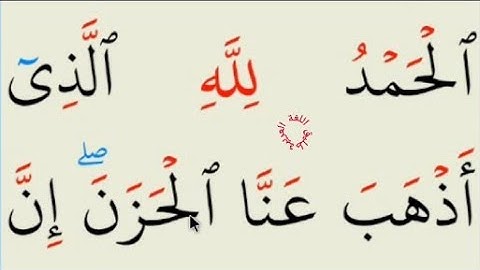 ٱلْحَمْدُ لِلَّهِ ٱلَّذِىٓ
أَذْهَبَ عَنَّا ٱلْحَزَنَ ۖ إِنَّ